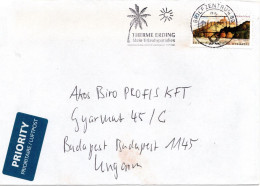 THERME ERDING
BRIEFZENTRUM
Akos Biro PROFIS KFT
Gyarmat 45/C
Budapest Budapest 1145
Ungarn
PRIORITY
PRIORITAIRE / LUFTPOST